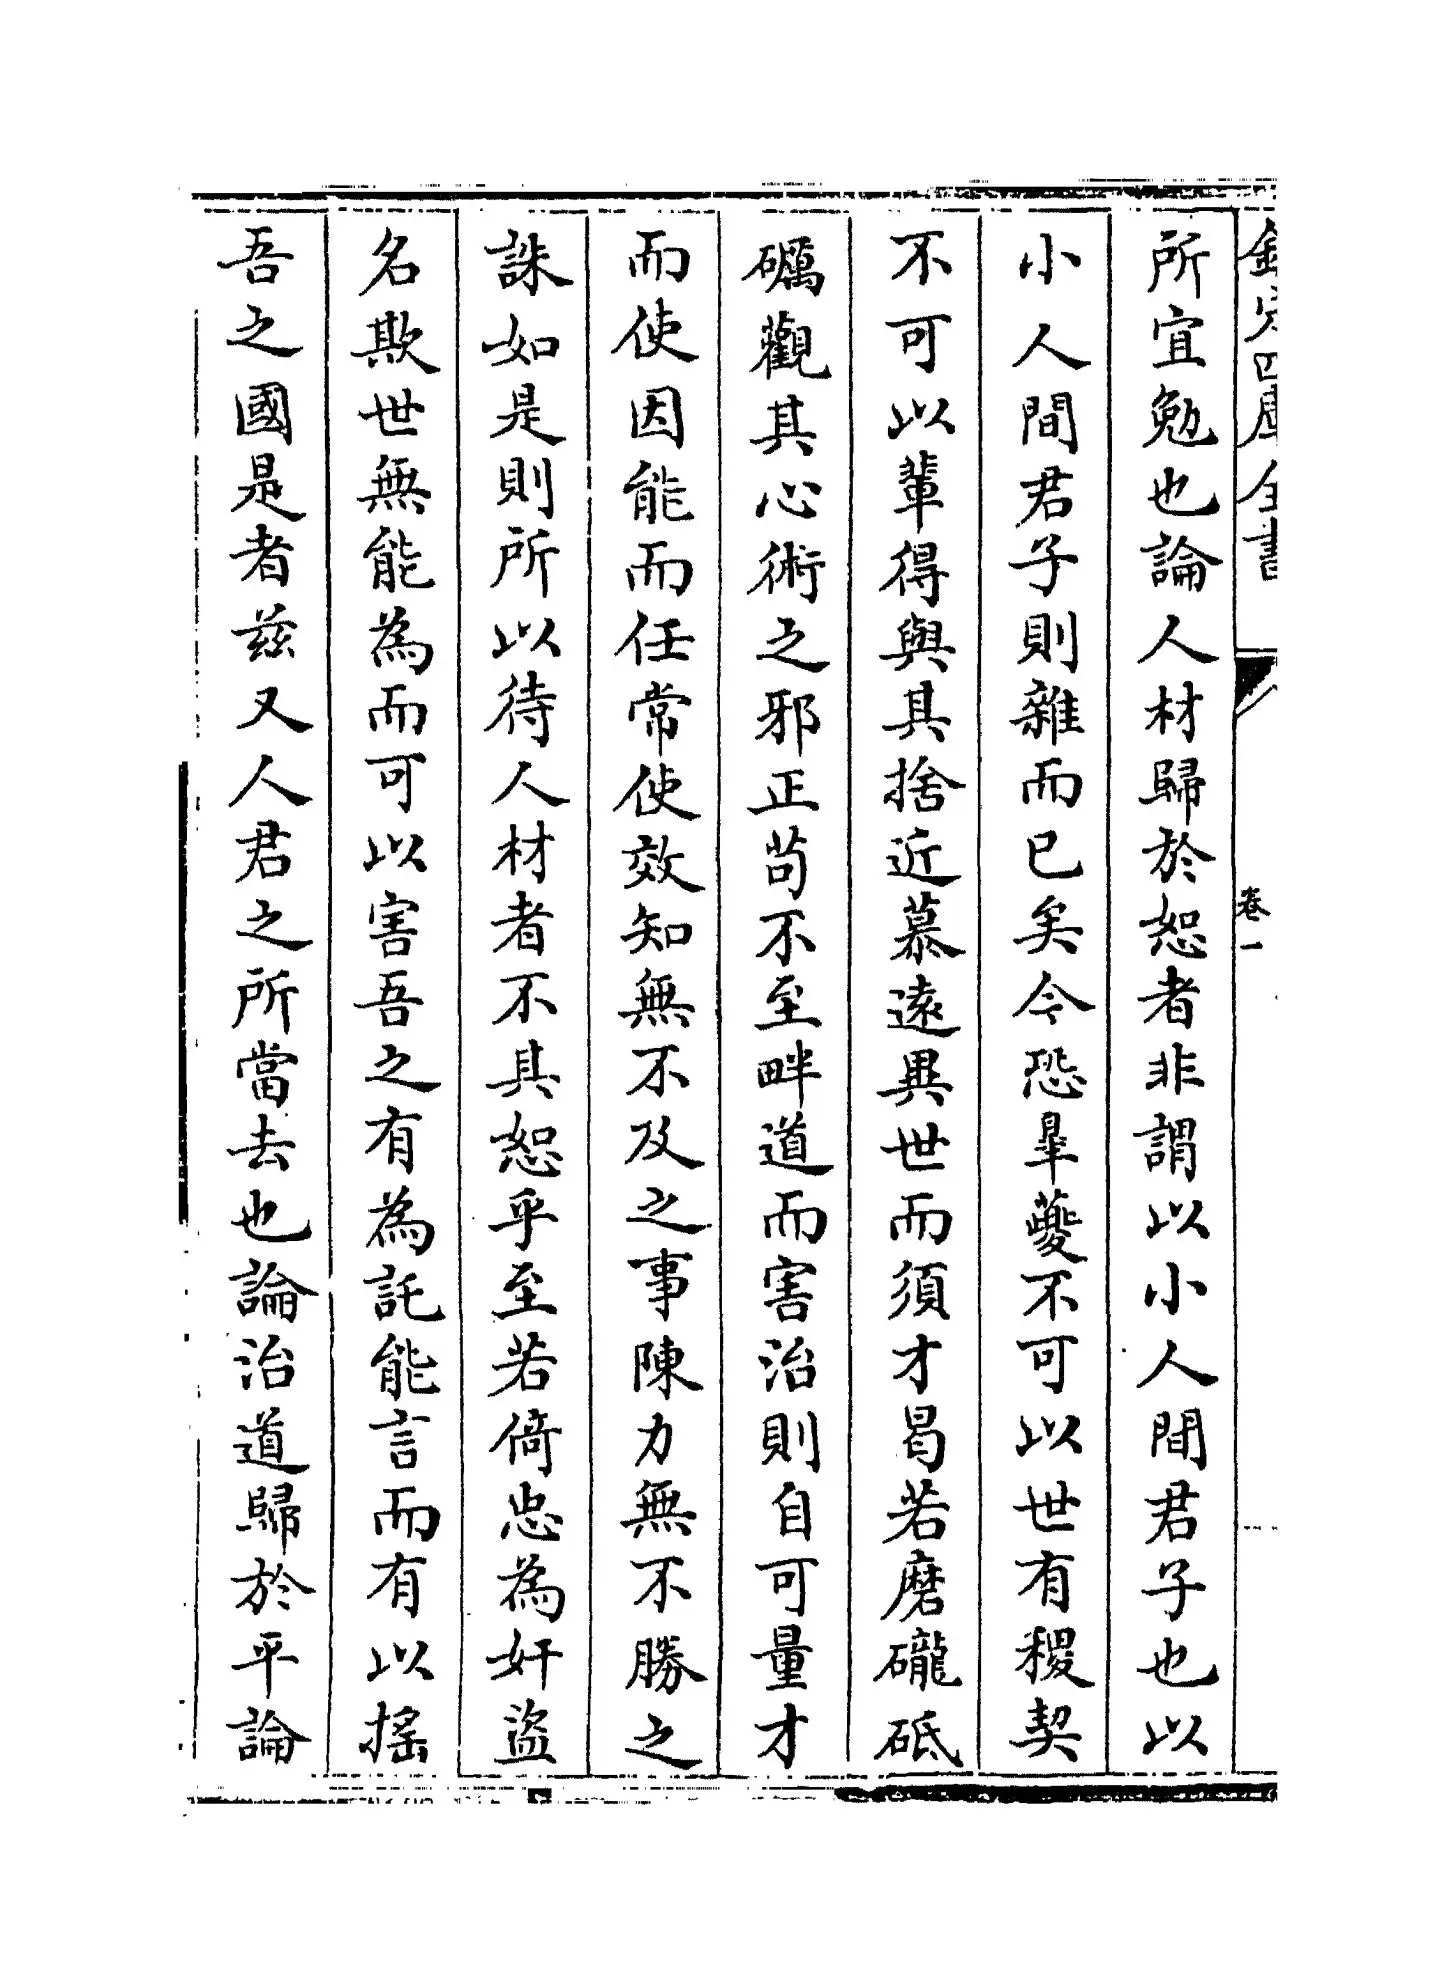 欽定四庫全書
卷一
所宜勉也論人材歸於恕者非謂以小人間君子也以
小人間君子則雜而已矣今恐皐夔不可以世有稷契
不可以輩得與其捨近慕遠異世而須才曷若磨礲砥
礪觀其心術之邪正苟不至畔道而害治則自可量才
而使因能而任常使效知無不及之事陳力無不勝之
誅如是則所以待人材者不其恕乎至若倚忠為奸盜
名欺世無能為而可以害吾之有為託能言而有以揺
吾之國是者兹又人君之所當去也論治道歸於平論